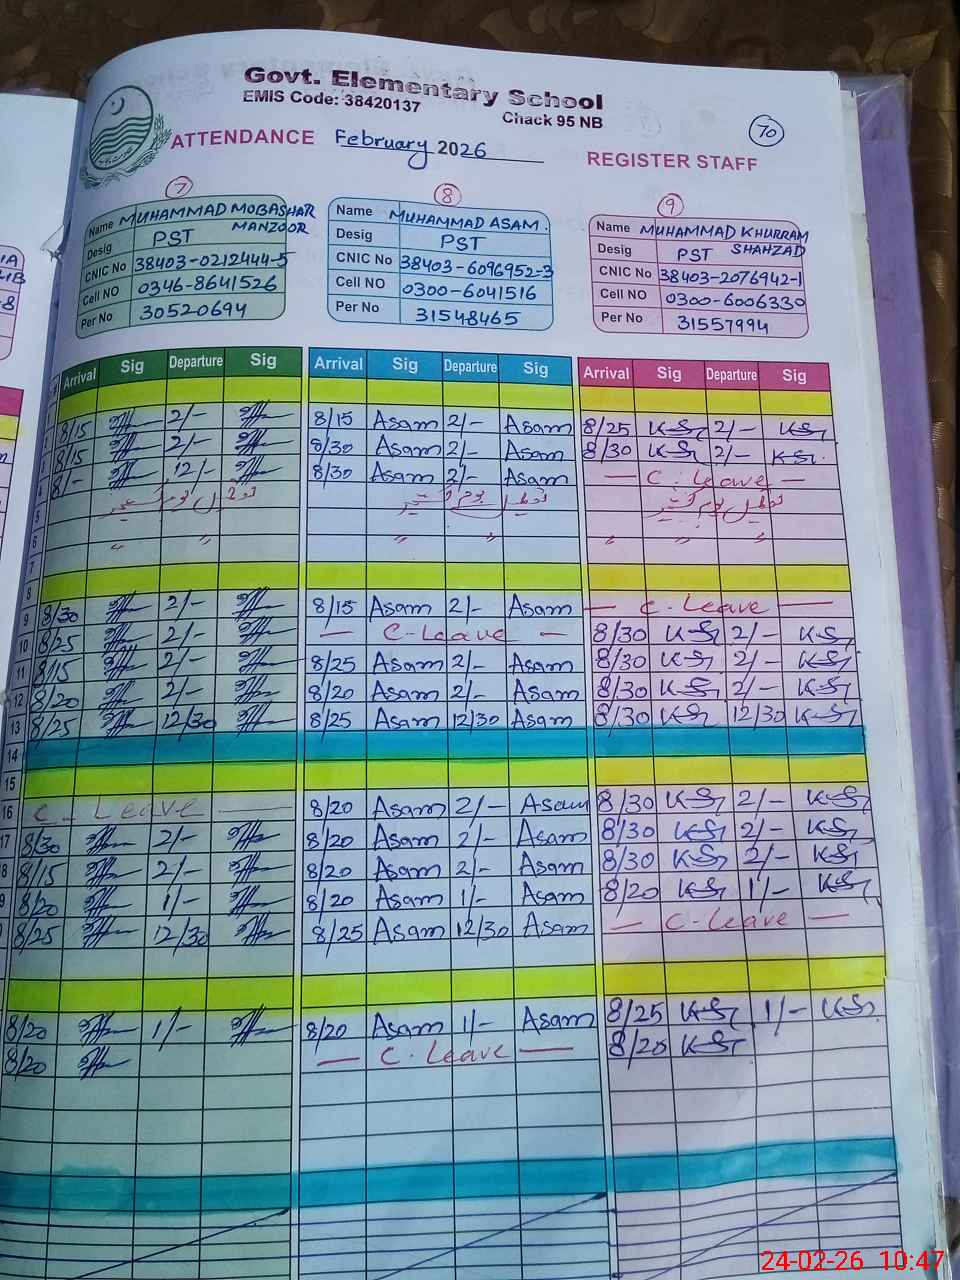 Govt. Elementary School
EMIS Code: 38420137
Chack 95 NB
70
ATTENDANCE February 2026 REGISTER STAFF
7 8 9
Name MUHAMMAD MOBASHAR MANZOOR
Desig PST
CNIC No 38403-0212444-5
Cell NO 0346-8641526
Per No 30520694
Name MUHAMMAD ASAM.
Desig PST
CNIC No 38403-6096952-3
Cell NO 0300-6041516
Per No 31548465
Name MUHAMMAD KHURRAM SHAHZAD
Desig PST
CNIC No 38403-2076942-1
Cell NO 0300-6006330
Per No 31557994
Arrival Sig Departure Sig Arrival Sig Departure Sig Arrival Sig Departure Sig
8/15 2/- 8/15 Asam 2/- Asam 8/25 2/-
8/15 2/- 8/30 Asam 2/- Asam 8/30 2/-
8/- 12/- 8/30 Asam 2/- Asam — C. Leave —
4
5
6 " " " " " " "
7
8
9 8/30 2/- 8/15 Asam 2/- Asam — C. Leave —
10 8/25 2/- — C-Leave — 8/30 2/-
11 8/15 2/- 8/25 Asam 2/- Asam 8/30 2/-
12 8/20 2/- 8/20 Asam 2/- Asam 8/30 2/-
13 8/25 12/30 8/25 Asam 12/30 Asam 8/30 12/30
14
15
16 C. Leave — 8/20 Asam 2/- Asam 8/30 2/-
17 8/30 2/- 8/20 Asam 2/- Asam 8/30 2/-
8 8/15 2/- 8/20 Asam 2/- Asam 8/30 2/-
9 8/20 1/- 8/20 Asam 1/- Asam 8/20 1/-
8/25 12/30 8/25 Asam 12/30 Asam — C-Leave —
8/20 1/- 8/20 Asam 1/- Asam 8/25 1/-
8/20 — C. Leave — 8/20
24-02-26 10:47